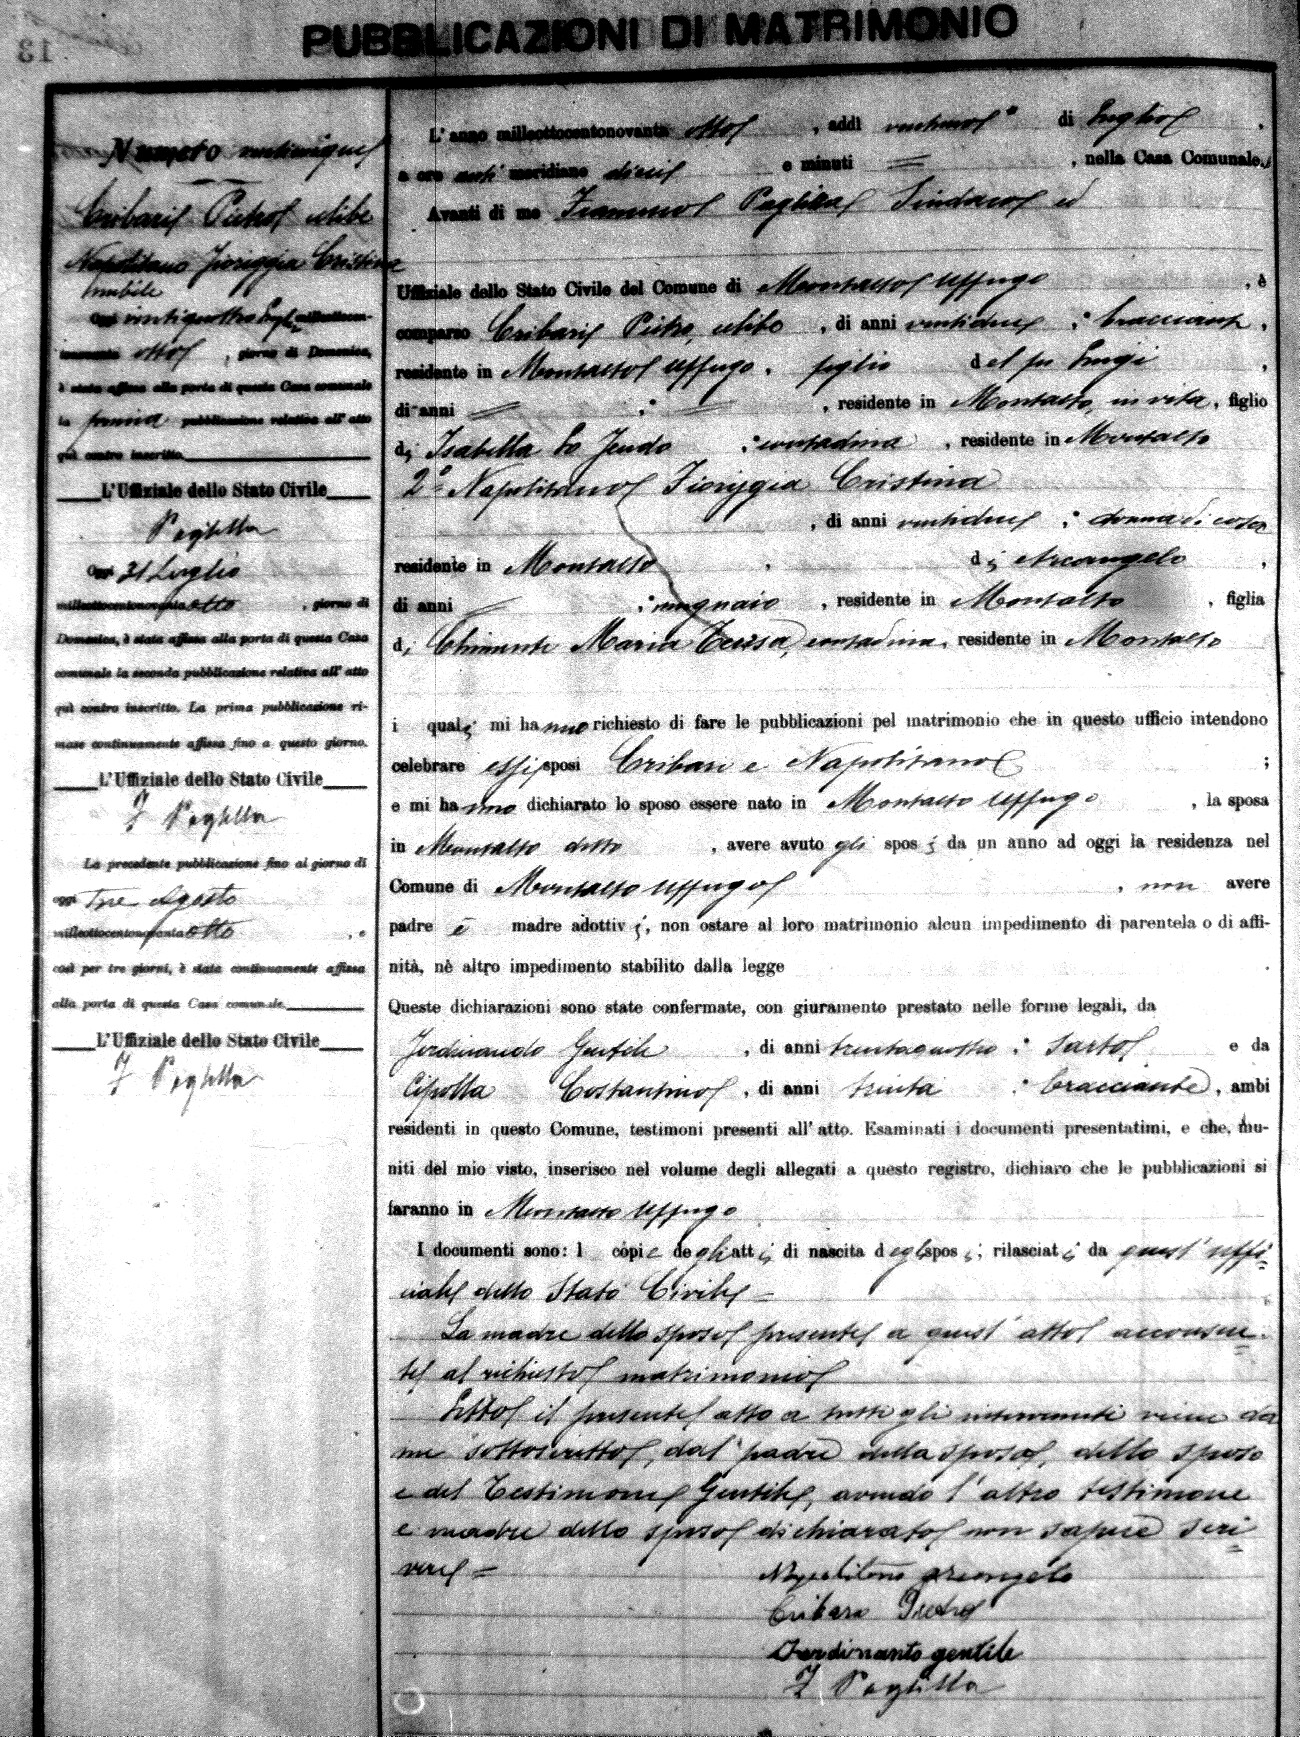 PUBBLICAZIONI DI MATRIMONIO
13
Numero venticinque
Cribari Pietro celibe
Napolitano Fioriggia Cristina
nubile
Oggi ventiquattro Luglio milleottocen-
tonovanta otto, giorno di Domenica,
è stata affissa alla porta di questa Casa comunale
la prima pubblicazione relativa all'atto
quì contro inscritto.
L'Uffiziale dello Stato Civile
Paglilla
Oggi 31 Luglio
milleottocentonovanta otto, giorno di
Domenica, è stata affissa alla porta di questa Casa
comunale la seconda pubblicazione relativa all'atto
quì contro inscritto. La prima pubblicazione ri-
mase continuamente affissa fino a questo giorno.
L'Uffiziale dello Stato Civile
F Paglilla
La precedente pubblicazione fino al giorno di
oggi tre Agosto
milleottocentonovanta otto, e
così per tre giorni, è stata continuamente affissa
alla porta di questa Casa comunale.
L'Uffiziale dello Stato Civile
F Paglilla
L'anno milleottocentonovanta otto, addì di Luglio,
a ore anti meridiane dieci e minuti =, nella Casa Comunale.
Avanti di me Paglilla Sindaco ed
Uffiziale dello Stato Civile del Comune di Montalto Uffugo, è
comparso Cribari Pietro, celibe, di anni ventidue; bracciante,
residente in Montalto Uffugo, figlio del fu Luigi,
di anni =; =, residente in Montalto, in vita, figlio
di Isabella Lo Feudo; contadina, residente in Montalto
2° Napolitano Fioriggia Cristina
, di anni ventidue; donna di casa
residente in Montalto, di Arcangelo,
di anni =; mugnaio, residente in Montalto, figlia
di Chimenti Maria Teresa, contadina, residente in Montalto
i quali mi hanno richiesto di fare le pubblicazioni pel matrimonio che in questo ufficio intendono
celebrare essi sposi Cribari e Napolitano;
e mi hanno dichiarato lo sposo essere nato in Montalto Uffugo, la sposa
in Montalto detto, avere avuto gli sposi da un anno ad oggi la residenza nel
Comune di Montalto Uffugo, non avere
padre e madre adottivi, non ostare al loro matrimonio alcun impedimento di parentela o di affi-
nità, nè altro impedimento stabilito dalla legge
Queste dichiarazioni sono state confermate, con giuramento prestato nelle forme legali, da
Ferdinando Gentile, di anni trentaquattro; sarto e da
Cipolla Costantino, di anni trenta; bracciante, ambi
residenti in questo Comune, testimoni presenti all'atto. Esaminati i documenti presentatimi, e che, mu-
niti del mio visto, inserisco nel volume degli allegati a questo registro, dichiaro che le pubblicazioni si
faranno in Montalto Uffugo
I documenti sono: 1 copie degli atti di nascita degli sposi; rilasciati da quest'uffi=
ciale dello Stato Civile =
La madre dello sposo presente a quest'atto acconsen=
te al richiesto matrimonio
Letto il presente atto a tutti gli intervenuti viene da
me sottoscritto, dal padre della sposa, dello sposo
e del Testimone Gentile, avendo l'altro testimone
e madre dello sposo dichiarato non sapere scri=
vere =
Napolitano Arcangelo
Cribari Pietro
Ferdinanto gentile
F Paglilla